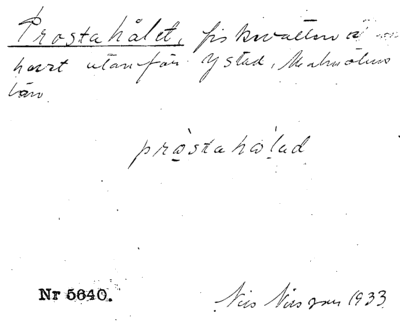 Prostahålet, fiskvatten i
havet utanför Ystad, Malmöhus
län.
pråstahålad
Nr 5640.
Nils Nilsson 1933.